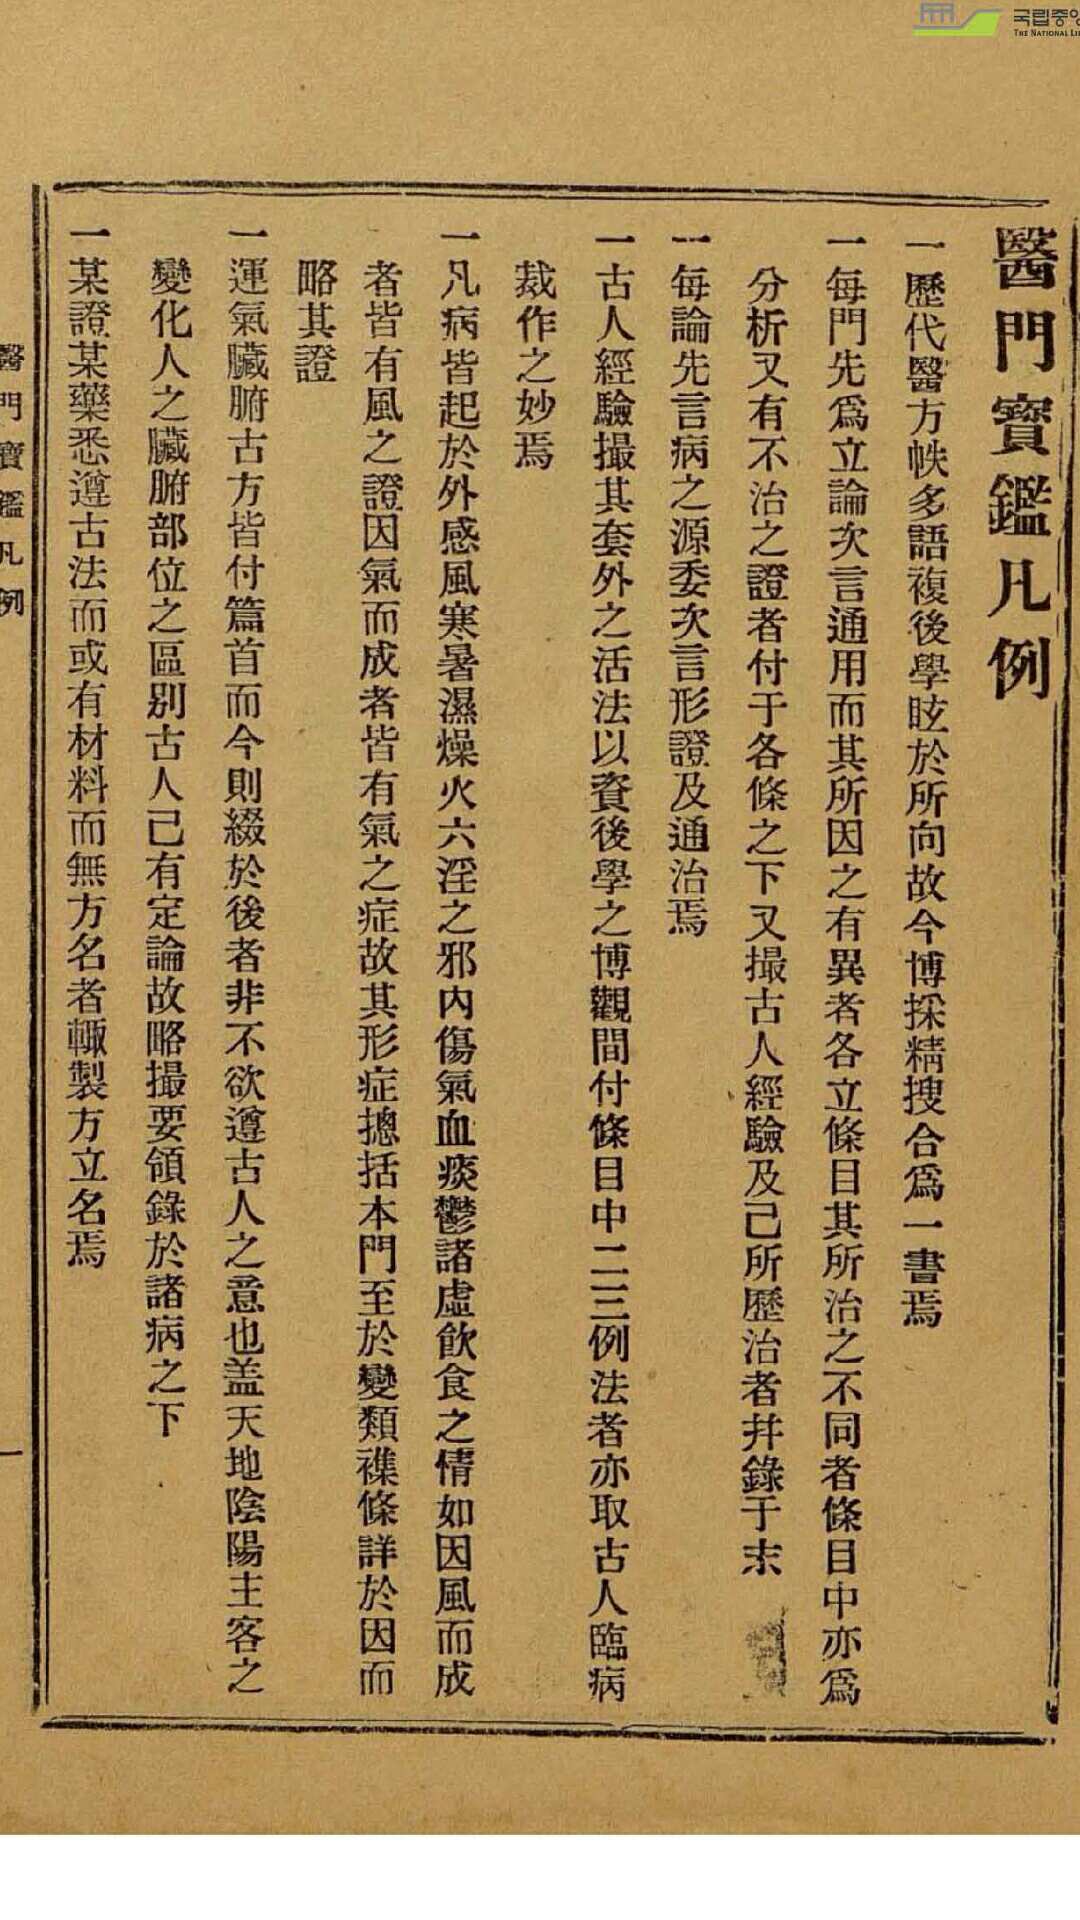 국립중앙
THE NATIONAL LI
醫門寶鑑凡例
一歷代醫方帙多語複後學眩於所向故今博採精搜合爲一書焉
一每門先爲立論次言通用而其所因之有異者各立條目其所治之不同者條目中亦爲
分析又有不治之證者付于各條之下又撮古人經驗及己所歷治者幷錄于末
一每論先言病之源委次言形證及通治焉
一古人經驗撮其套外之活法以資後學之博觀間付條目中二三例法者亦取古人臨病
裁作之妙焉
一凡病皆起於外感風寒暑濕燥火六淫之邪內傷氣血痰鬱諸虛飮食之情如因風而成
者皆有風之證因氣而成者皆有氣之症故其形症摠括本門至於變類襍條詳於因而
略其證
一運氣臟腑古方皆付篇首而今則綴於後者非不欲遵古人之意也盖天地陰陽主客之
變化人之臟腑部位之區別古人已有定論故略撮要領錄於諸病之下
一某證某藥悉遵古法而或有材料而無方名者輙製方立名焉
醫門寶鑑凡例
一